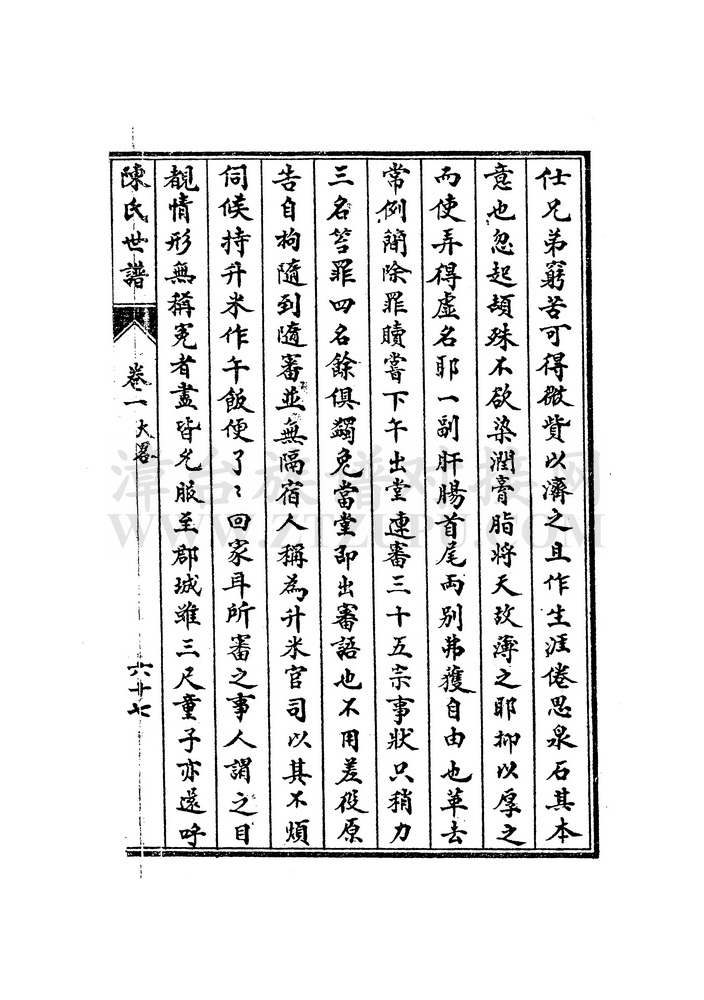 仕兄弟窮苦可得微貲以濟之且作生涯倦思泉石其本
意也忽起頡殊不欲染潤膏脂將天故薄之耶抑以厚之
而使弄得虛名耶一副肝腸首尾兩別弗獲自由也革去
常例簡除罪贖嘗下午出堂連審三十五宗事狀只稍力
三名笞罪四名餘俱蠲免當堂即出審語也不用差役原
告自拘隨到隨審並無隔宿人稱為升米官司以其不煩
伺候持升米作午飯便了〻回家耳所審之事人謂之目
覩情形無稱冤者盡皆允服至郡城雖三尺童子亦遠呼
陳氏世譜 卷一 大畧 六十七
漳台族谱对接网
WWW.ZTZUPU.COM